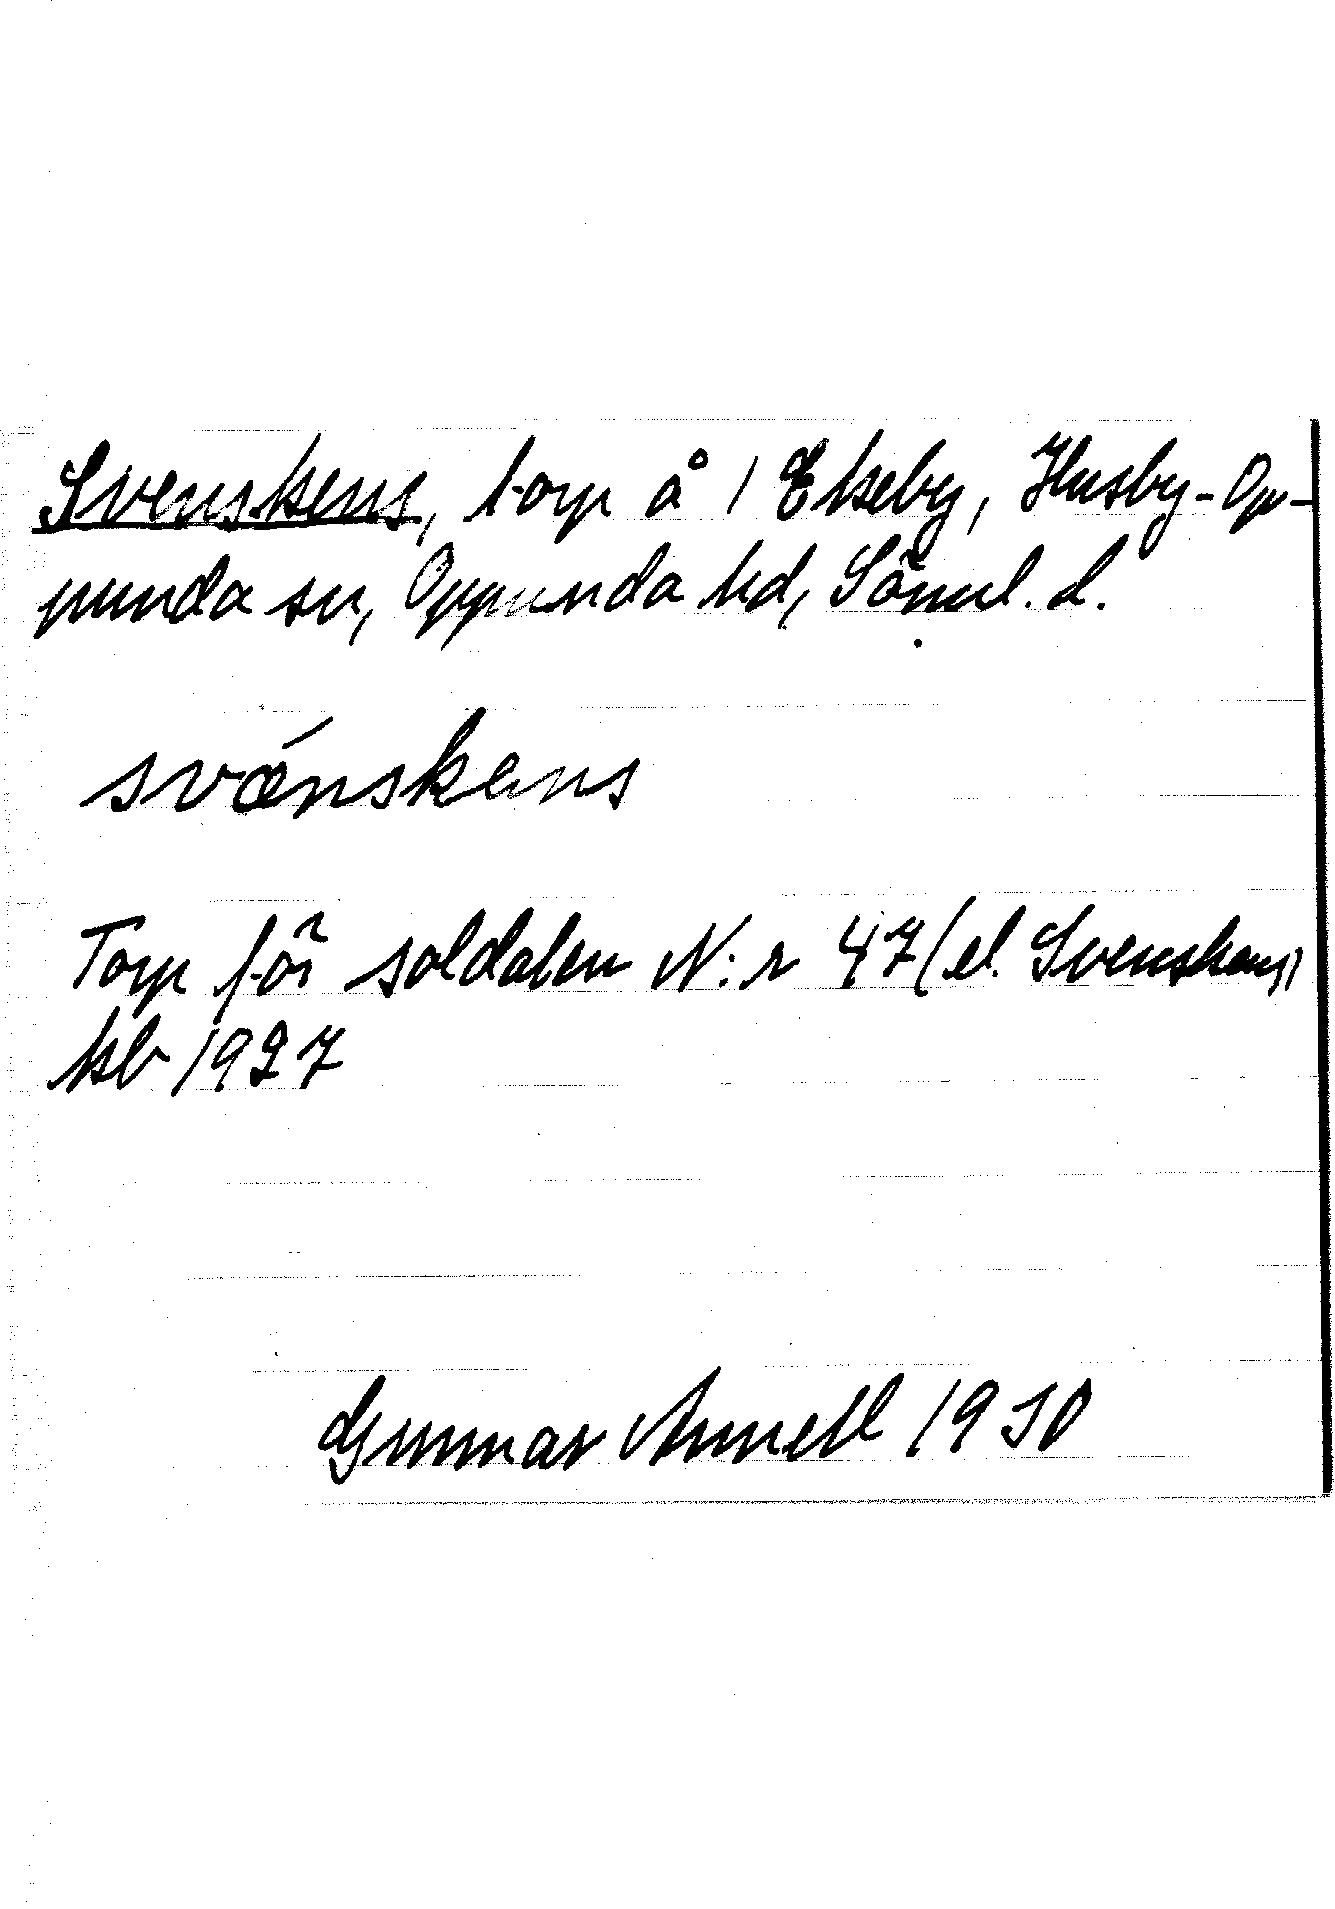 Svenskens, torp å 1 Ekeby, Husby-Op-
punda sn, Oppunda hd, Söml. l.
svǽnskens
Torp för soldaten N:r 47 (el. Svenskens)
kb 1927
Gunnar Annell 1930